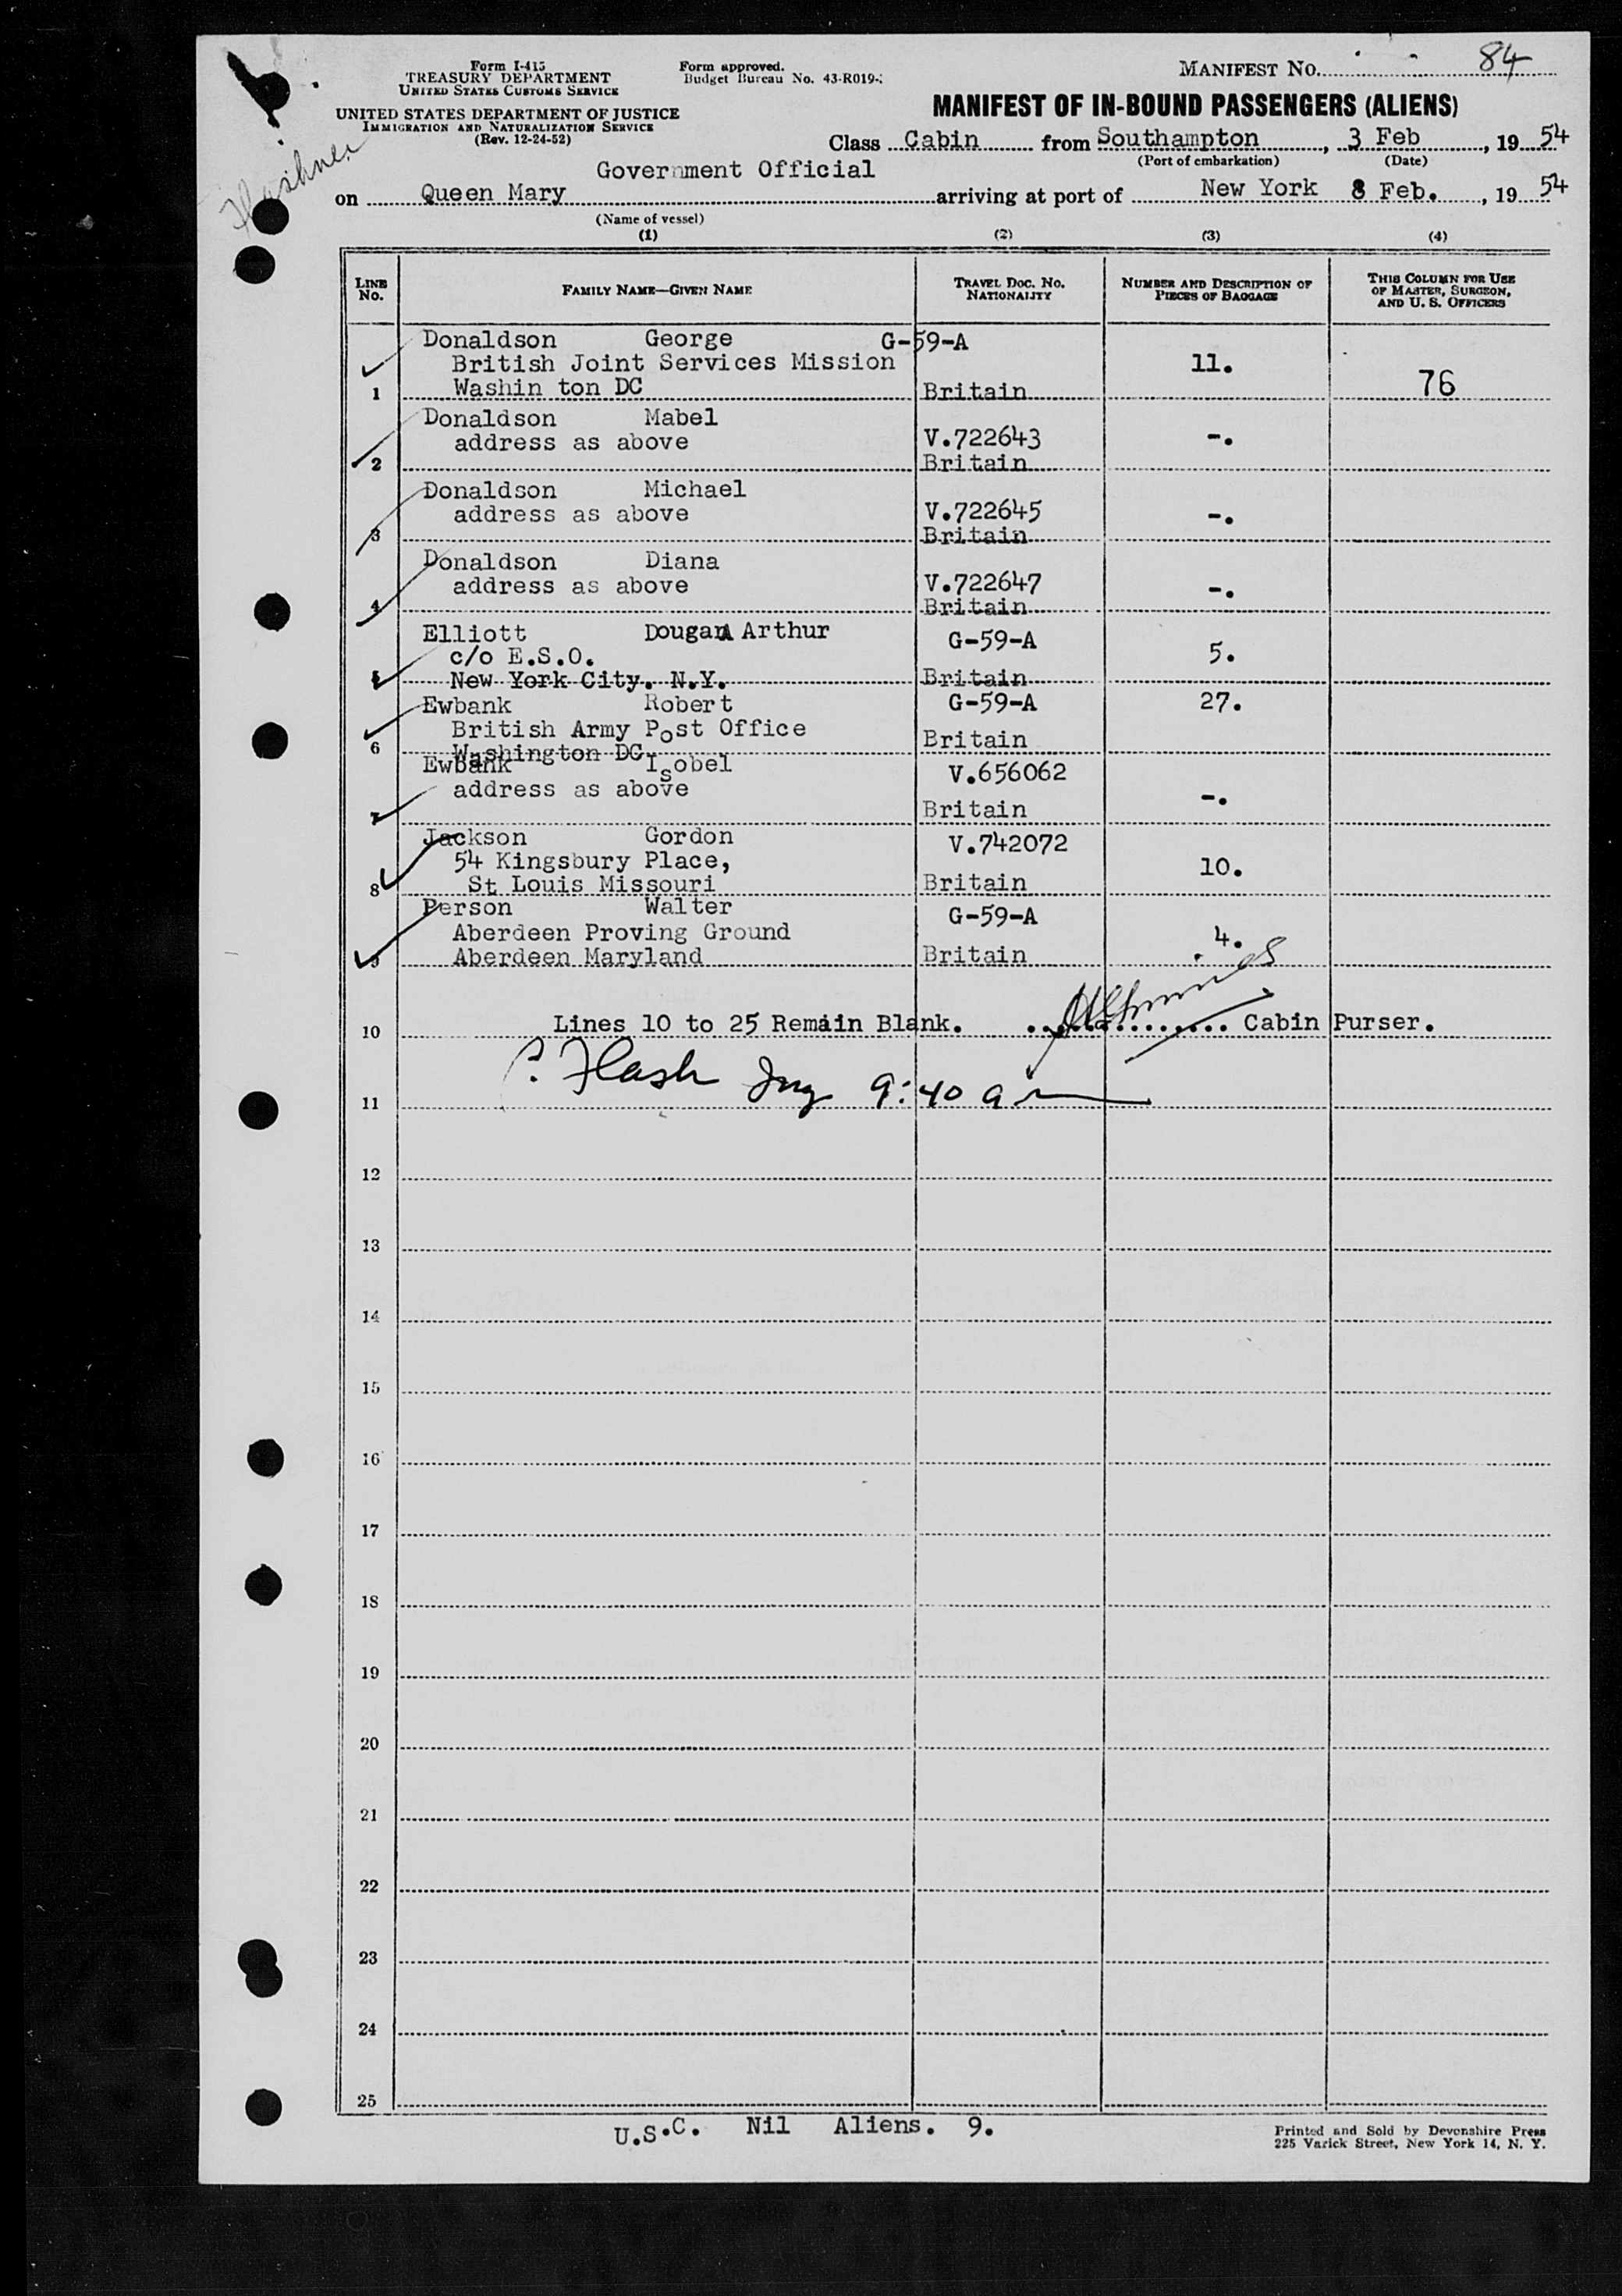 84
Form I-415
TREASURY DEPARTMENT
UNITED STATES CUSTOMS SERVICE
Form approved.
Budget Bureau No. 43-R019-
MANIFEST NO.
UNITED STATES DEPARTMENT OF JUSTICE
IMMIGRATION AND NATURALIZATION SERVICE
(Rev. 12-24-52)
MANIFEST OF IN-BOUND PASSENGERS (ALIENS)
Class Cabin from Southampton, 3 Feb, 19 54
(Port of embarkation) (Date)
Government Official
on Queen Mary arriving at port of New York 8 Feb., 19 54
(Name of vessel)
(1) (2) (3) (4)
LINE NO. FAMILY NAME—GIVEN NAME TRAVEL DOC. NO. NATIONALITY NUMBER AND DESCRIPTION OF PIECES OF BAGGAGE THIS COLUMN FOR USE OF MASTER, SURGEON, AND U. S. OFFICERS
Donaldson George G-59-A
British Joint Services Mission 11.
1 Washin ton DC Britain 76
Donaldson Mabel
address as above V.722643 -.
2 Britain
Donaldson Michael
address as above V.722645 -.
3 Britain
Donaldson Diana
address as above V.722647 -.
4 Britain
Elliott Dougan Arthur G-59-A
c/o E.S.O. 5.
5 New York City. N.Y. Britain
Ewbank Robert G-59-A 27.
British Army Post Office
6 Washington DC Britain
Ewbank Isobel V.656062
address as above -.
7 Britain
Jackson Gordon V.742072
54 Kingsbury Place, 10.
8 St Louis Missouri Britain
Person Walter G-59-A
Aberdeen Proving Ground 4.
9 Aberdeen Maryland Britain
10 Lines 10 to 25 Remain Blank. Cabin Purser.
11 Flash Ing 9:40 am
12
13
14
15
16
17
18
19
20
21
22
23
24
25
U.S.C. Nil Aliens. 9.
Printed and Sold by Devonshire Press
225 Varick Street, New York 14, N. Y.